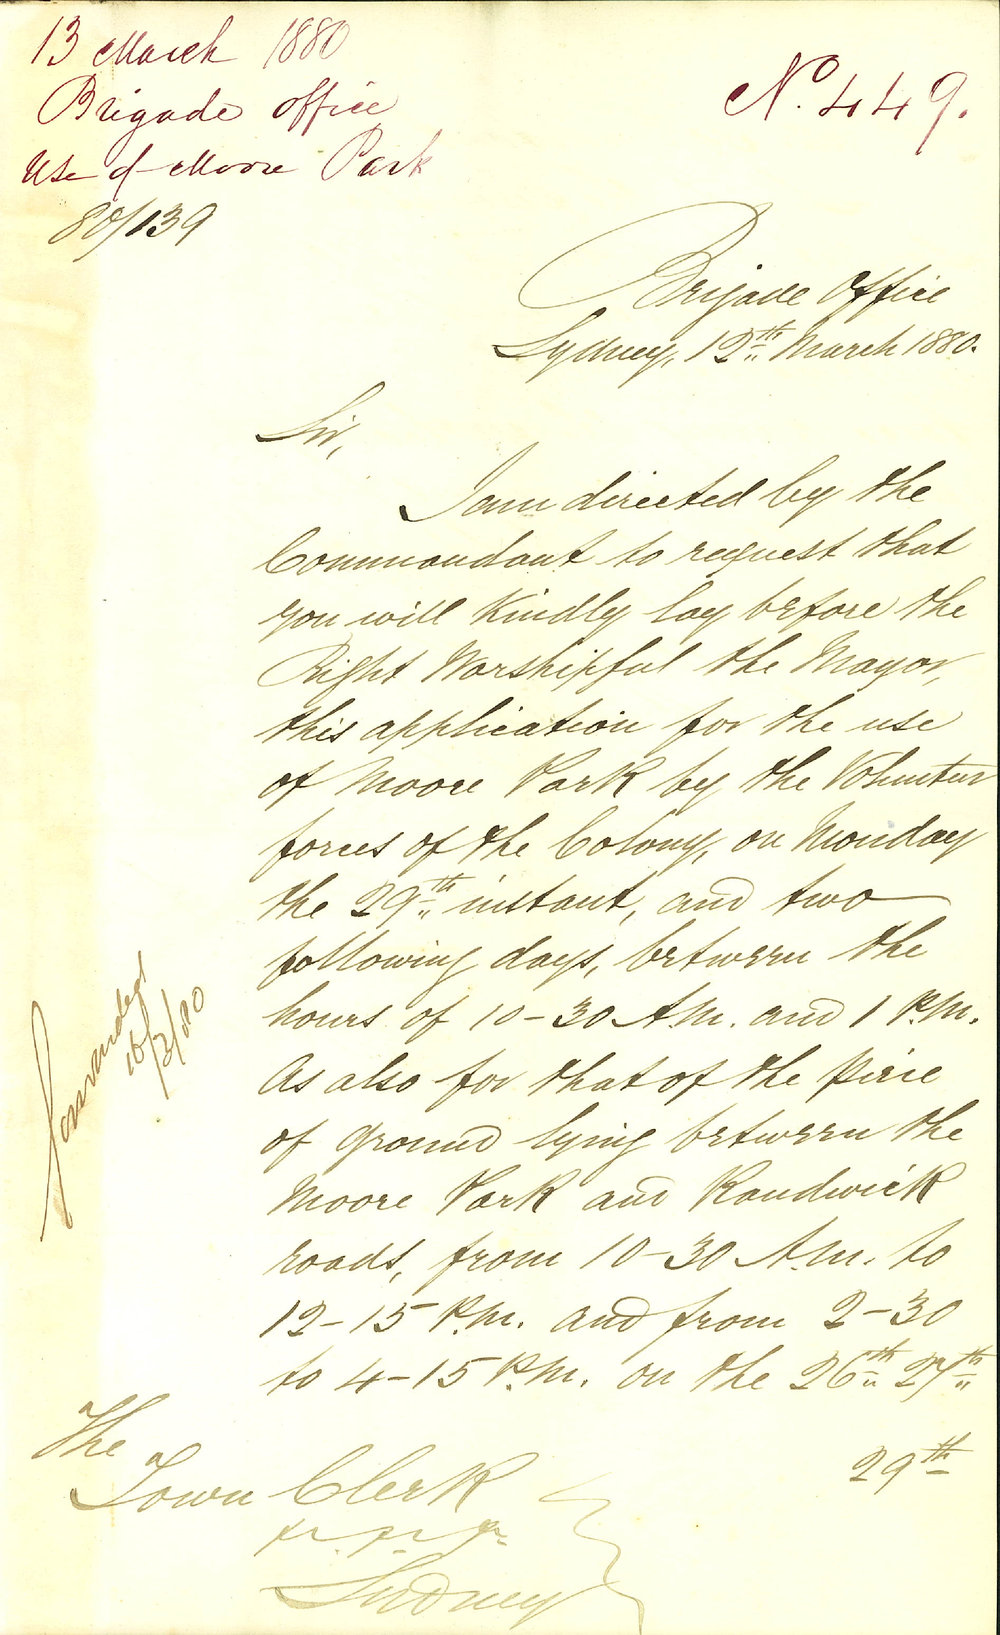 13 March 1880
Brigade office
use of Moore Park
80/139
No. 449.
Brigade Office
Sydney, 12th March 1880.
Sir,
I am directed by the
Commandant to request that
you will kindly lay before the
Right Worshipful the Mayor,
this application for the use
of Moore Park by the Volunteer
forces of the Colony, on Monday
the 29th instant, and two
following days, between the
hours of 10-30 A.M. and 1 P.M.
As also for that of the piece
of ground lying between the
Moore Park and Randwick
roads, from 10-30 A.M. to
12-15 P.M. and from 2-30
to 4-15 P.M. on the 26th 27th
29th
The
Town Clerk
Sydney